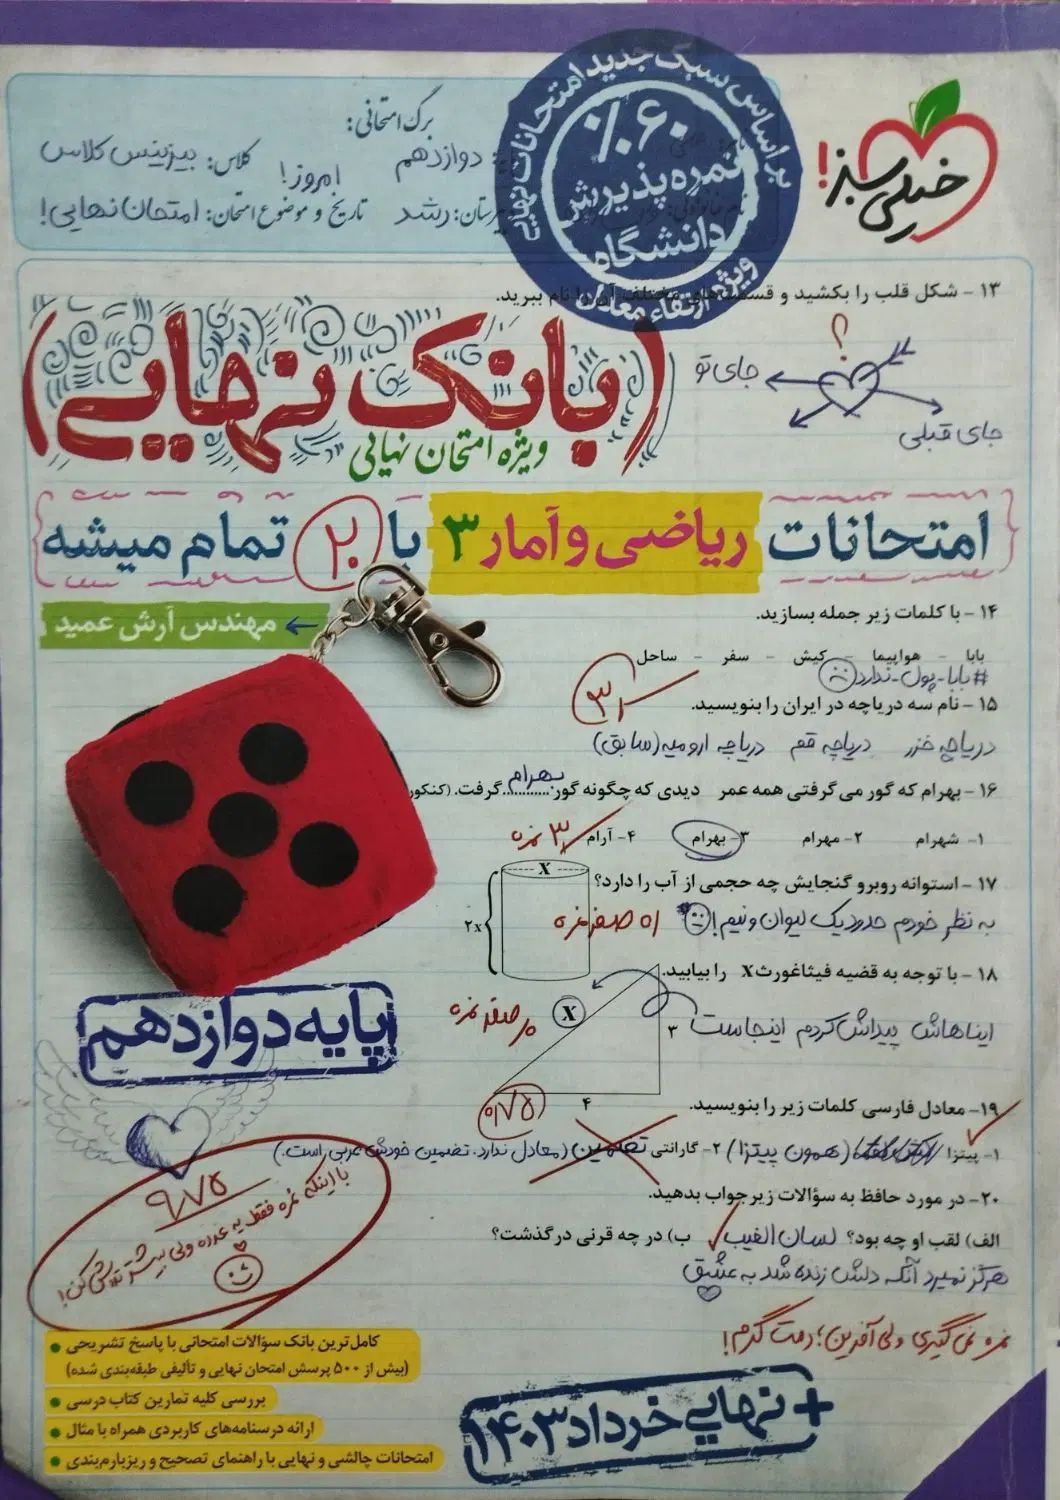 براساس سبک جدید امتحانات نهایی
۶۰٪
نمره پذیرش
دانشگاه
ویژه ارتقاء معدل
خیلی سبز!
برگ امتحانی:
دوازدهم
کلاس: بیزینس کلاس
امروز!
رشد
تاریخ و موضوع امتحان: امتحان نهایی!
۱۳ - شکل قلب را بکشید و قسمت‌های مختلف آن را نام ببرید.
؟
جای تو
جای قبلی
(بانک نهایی)
ویژه امتحان نهایی
امتحانات ریاضی و آمار ۳ با ۲۰ تمام میشه
مهندس آرش عمید
۱۴ - با کلمات زیر جمله بسازید.
بابا - هواپیما - کیش - سفر - ساحل
#بابا-پول-ندارد
۱۵ - نام سه دریاچه در ایران را بنویسید.
دریاچه خزر دریاچه قم دریاچه ارومیه (سابق)
۱۶ - بهرام که گور می گرفتی همه عمر دیدی که چگونه گور بهرام گرفت. (کنکور
۱- شهرام ۲- مهرام ۳- بهرام ۴- آرام
۳ نمره
۱۷ - استوانه روبرو گنجایش چه حجمی از آب را دارد؟
X
۲x
به نظر خودم حدود یک لیوان و نیم!
صفر نمره
۱۸ - با توجه به قضیه فیثاغورث X را بیابید.
X
۳
۴
ایناهاش پیداش کردم اینجاست
صفر نمره
۱۹- معادل فارسی کلمات زیر را بنویسید.
۰/۷۵
۱- پیتزا (همون پیتزا) ۲- گارانتی تضمین (معادل ندارد. تضمین خودش عربی است.)
۲۰- در مورد حافظ به سؤالات زیر جواب بدهید.
الف) لقب او چه بود؟ لسان الغیب ب) در چه قرنی درگذشت؟
هرگز نمیرد آنکه دلش زنده شد به عشق
نمره نمی‌گیری ولی آفرین؛ دمت گرم!
پایه دوازدهم
۹/۷۵
با اینکه نمره فقط یه عدده ولی بیشتر تلاش کن!
کامل‌ترین بانک سؤالات امتحانی با پاسخ تشریحی
(بیش از ۵۰۰ پرسش امتحان نهایی و تألیفی طبقه‌بندی شده)
بررسی کلیه تمارین کتاب درسی
ارائه درسنامه‌های کاربردی همراه با مثال
امتحانات چالشی و نهایی با راهنمای تصحیح و ریزبارم‌بندی
+ نهایی خرداد ۱۴۰۳